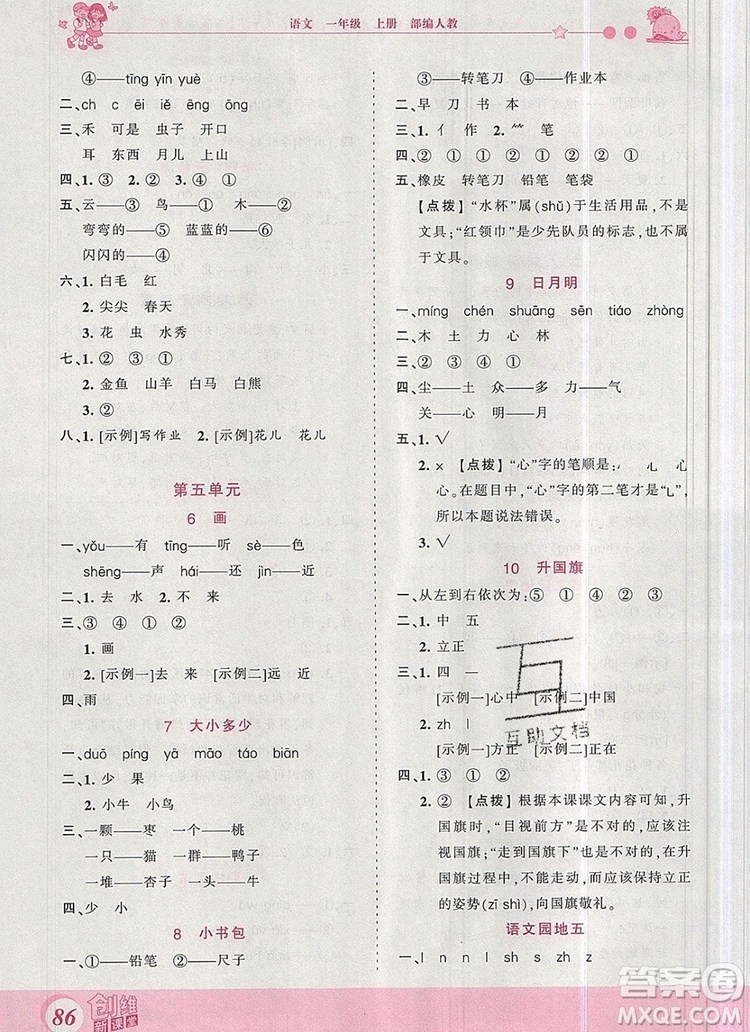 语文 一年级 上册 部编人教
④——tīng yīn yuè
二、ch c ēi iě ēng ōng
三、禾 可是 虫子 开口
耳 东西 月儿 上山
四、1.③ 2.② 3.④①
五、云——③ 鸟——① 木——②
弯弯的——⑤ 蓝蓝的——⑥
闪闪的——④
六、1.白毛 红
2.尖尖 春天
3.花 虫 水秀
七、1.② ③ ①
2.金鱼 山羊 白马 白熊
3.②
八、1.[示例]写作业 2.[示例]花儿 花儿
第五单元
6 画
一、yǒu——有 tīng——听 sè——色
shēng——声 hái——还 jìn——近
二、1.去 水 2.不 来
三、③④①②
1.画
2.[示例一]去来 [示例二]远 近
四、雨
7 大小多少
一、duō píng yā māo táo bian
二、1.少 果
2.小牛 小鸟
三、一颗——枣 一个——桃
一只——猫 一群——鸭子
一堆——杏子 一头——牛
四、少 小
8 小书包
一、①——铅笔 ②——尺子
86
创维新课堂
③——转笔刀 ④——作业本
二、早 刀 书 本
三、1.亻 作 2.⺮ 笔
四、② ① ① ② ① ②
五、橡皮 转笔刀 铅笔 笔袋
[点拨]“水杯”属(shǔ)于生活用品，不是
文具；“红领巾”是少先队员的标志，也不属于
文具。
9 日月明
一、míng chén shuāng sēn tiáo zhòng
二、木 土 力 心 林
三、② ③ ④ ①
四、尘——土 众——多 力——气
关——心 明——月
五、1.√
2.× [点拨]“心”字的笔顺是：
。在题目中，“心”字的第二笔才是乚，
所以本题说法错误。
3.√
10 升国旗
一、从左到右依次为：⑤ ① ④ ② ③
二、1.中 五
2.立正
三、1.四 一
[示例一]心中 [示例二]中国
2.zh l
[示例一]方正 [示例二]正在
四、1.①②④
2.② [点拨]根据本课课文内容可知，升
国旗时，“目视前方”是不对的，应该注
视国旗；“走到国旗下”也是不对的，在升
国旗过程中，不能随意走动，应该保持立正
的姿势(zī shì)，向国旗敬礼。
语文园地五
一、l n n l sh s zh z
互助文档
答案卷
MXQE.COM